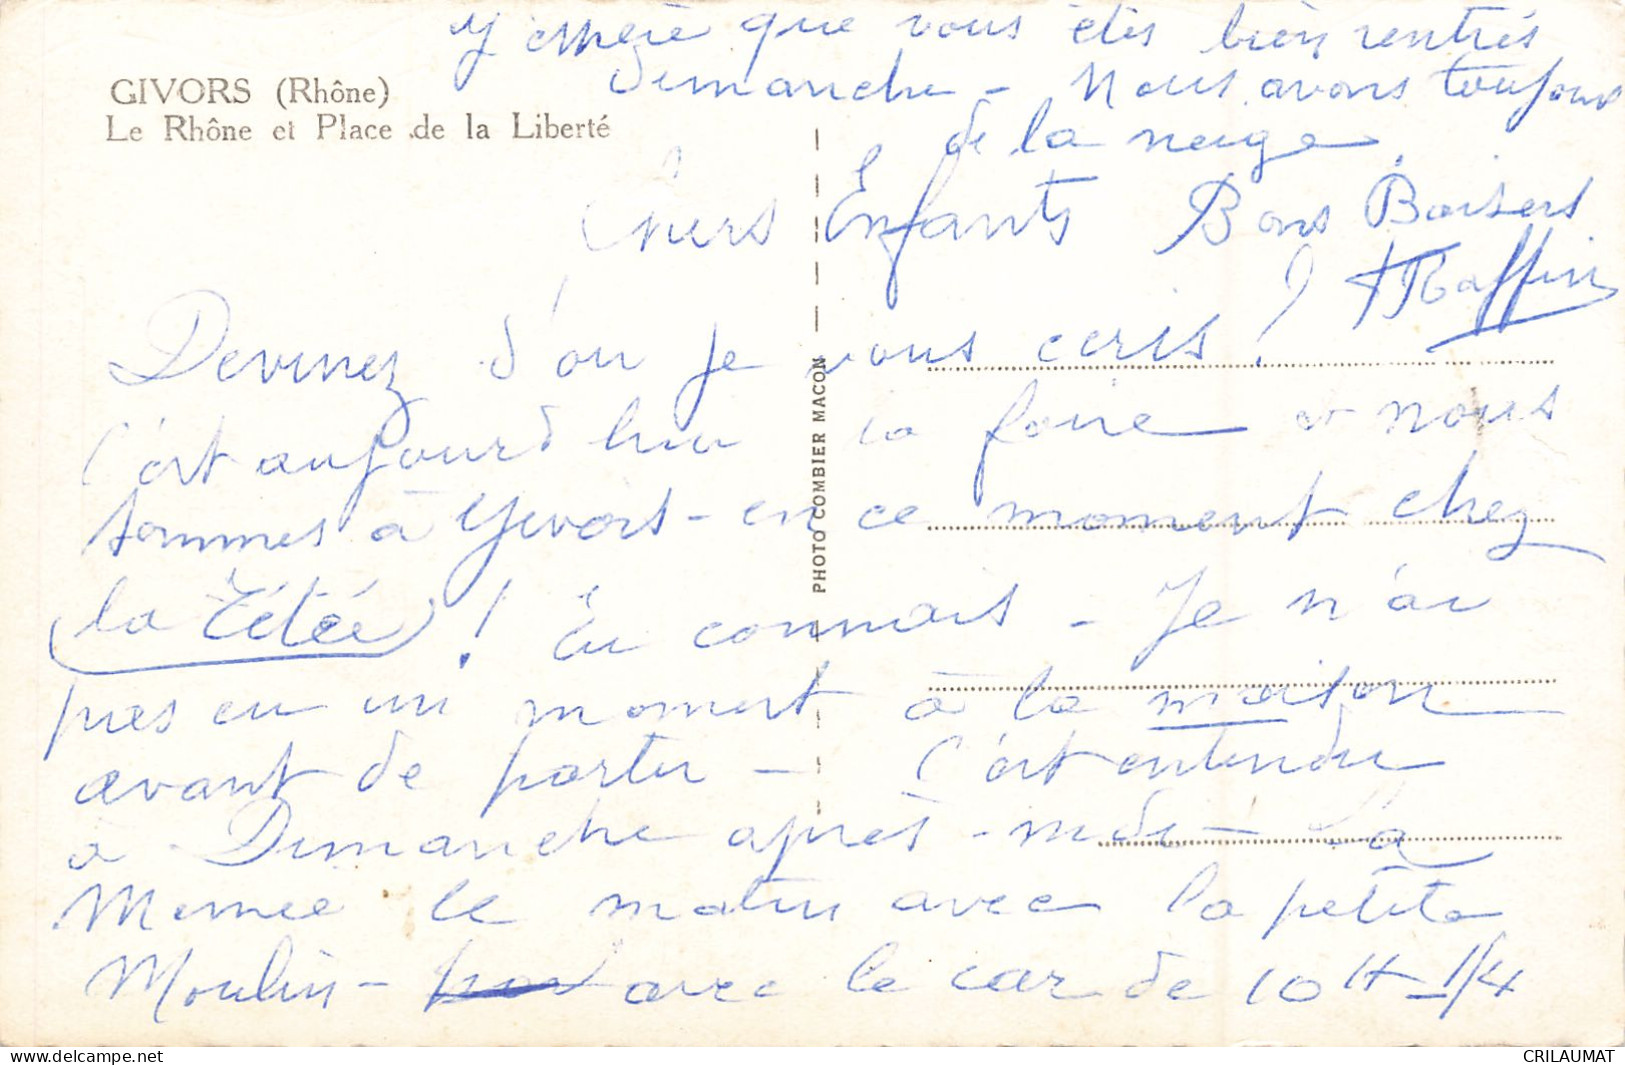 J'espère que vous êtes bien rentrés
Dimanche - Nous avons toujours
de la neige.
GIVORS (Rhône)
Le Rhône et Place de la Liberté
Chers Enfants Bons Baisers
Raffin
Devinez d'ou je vous ecris!
C'est aujourd hui la foire et nous
sommes à Givors - en ce moment chez
(la Tétée)! Tu connais - Je n'ai
pas eu un moment à la maison
avant de partir - C'est entendu
a Dimanche après-midi - La
Memee le matin avec la petite
Moulin - avec le car de 10 H 1/4
PHOTO COMBIER MACON
CRILAUMAT